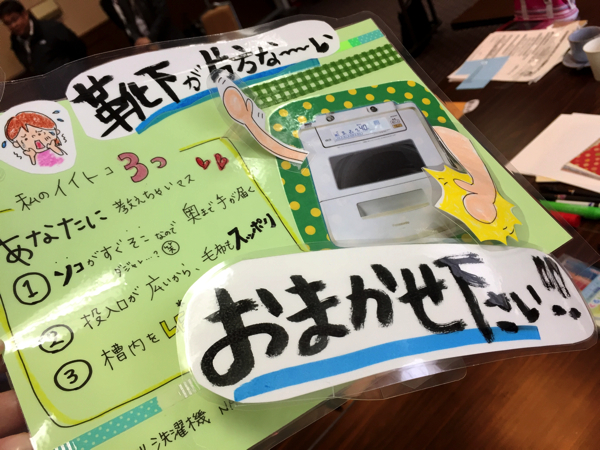 靴下が片方な〜い
私のイイトコ3つ
あなたに教えちゃいマス
①ソコがすぐそこなので奥まで手が届く
②投入口が広いから、毛布もスッポリ
③槽内をL
おまかせ下さい!!
洗濯機